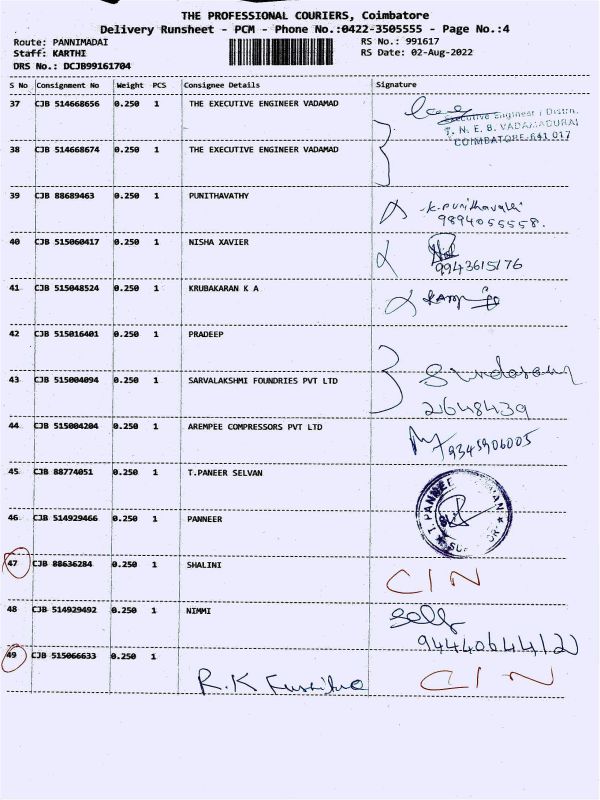 THE PROFESSIONAL COURIERS, Coimbatore
Delivery Runsheet - PCM - Phone No.:0422-3505555 - Page No.:4
Route: PANNIMADAI RS No.: 991617
Staff: KARTHI RS Date: 02-Aug-2022
DRS No.: DCJB99161704
S No Consignment No Weight PCS Consignee Details Signature
37 CJB 514668656 0.250 1 THE EXECUTIVE ENGINEER VADAMAD
Executive Engineer / Distn.
T. N. E. B. VADAMADURAI
COIMBATORE-641 017
38 CJB 514668674 0.250 1 THE EXECUTIVE ENGINEER VADAMAD
39 CJB 88689463 0.250 1 PUNITHAVATHY
K. Punithavathi
9894055558.
40 CJB 515060417 0.250 1 NISHA XAVIER
9943615176
41 CJB 515048524 0.250 1 KRUBAKARAN K A
42 CJB 515016401 0.250 1 PRADEEP
43 CJB 515004094 0.250 1 SARVALAKSHMI FOUNDRIES PVT LTD
2648439
44 CJB 515004204 0.250 1 AREMPEE COMPRESSORS PVT LTD
9345906005
45 CJB 88774051 0.250 1 T.PANEER SELVAN
46 CJB 514929466 0.250 1 PANNEER
47 CJB 88636284 0.250 1 SHALINI
CIN
48 CJB 514929492 0.250 1 NIMMI
9444064412
49 CJB 515066633 0.250 1
R.K CIN